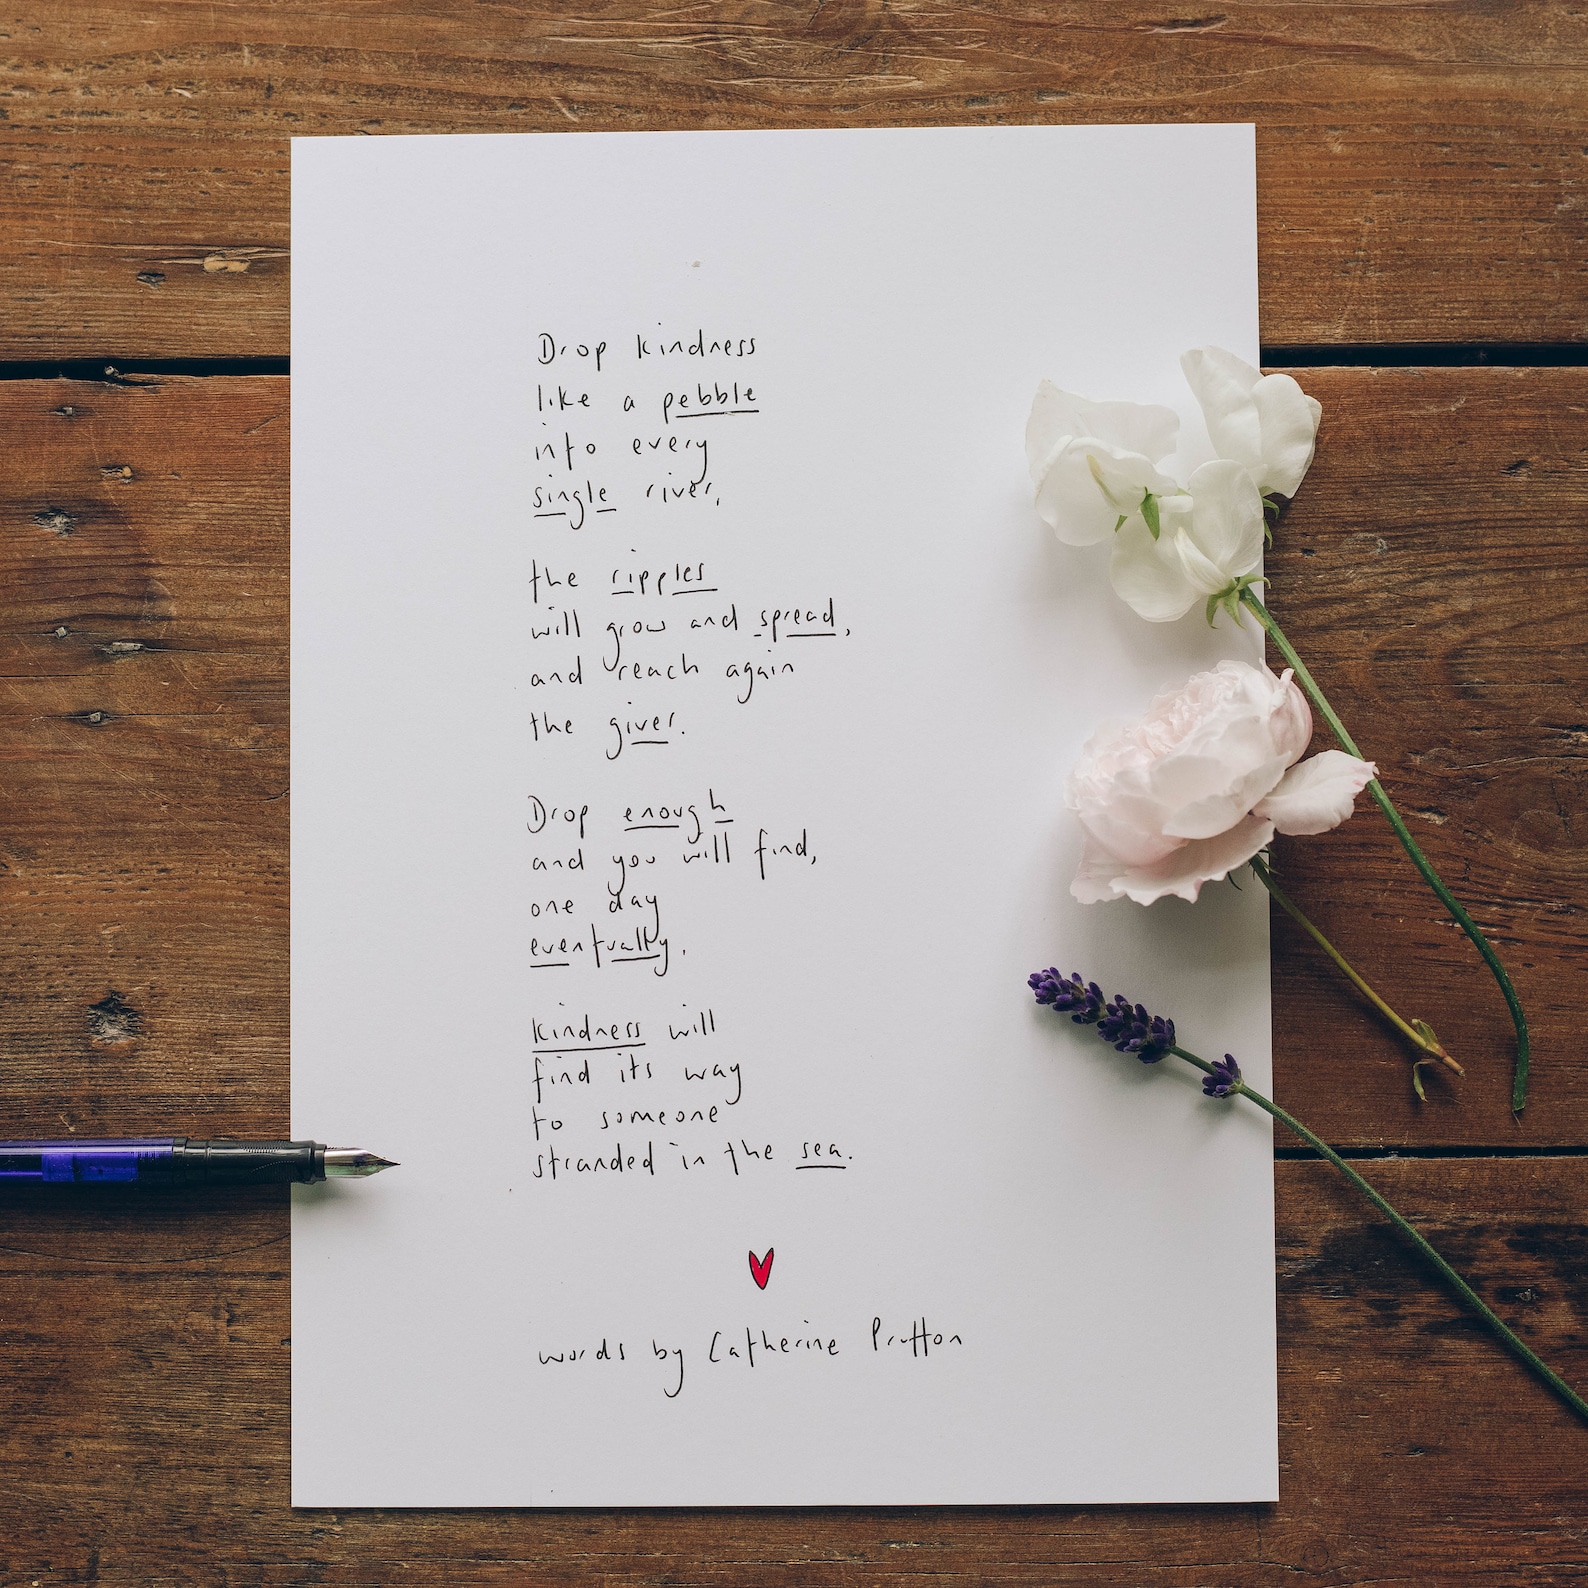 Drop kindness
like a pebble
into every
single river,
the ripples
will grow and spread,
and reach again
the giver.
Drop enough
and you will find,
one day
eventually,
kindness will
find its way
to someone
stranded in the sea.
words by Catherine Prutton